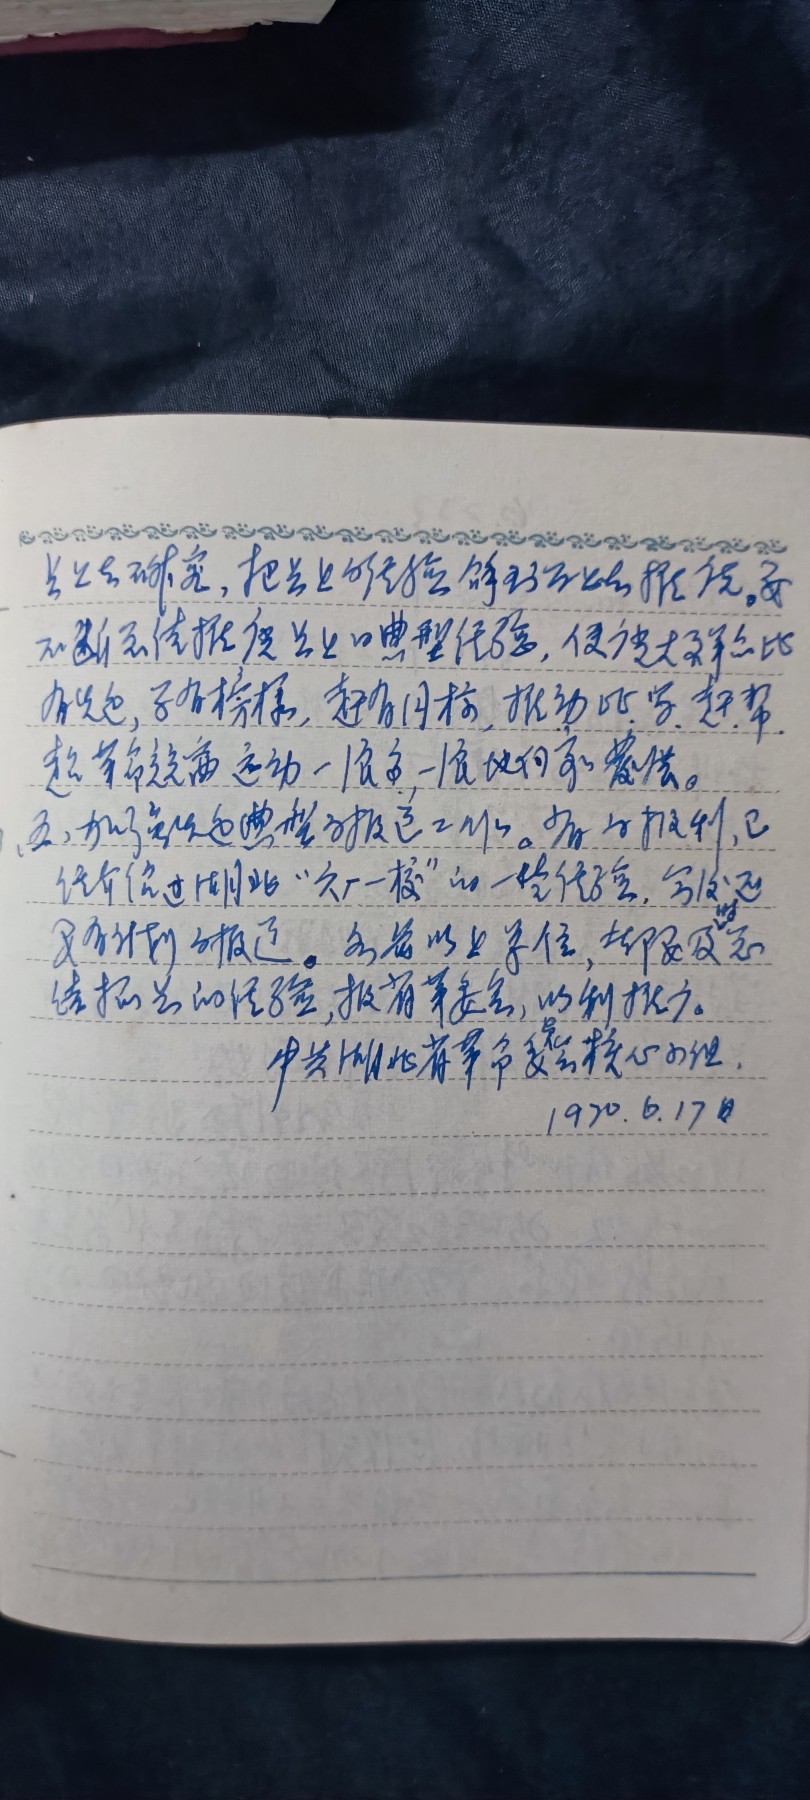 点上去研究，把点上的经验拿到面上去推广。要
不断总结推广点上的典型经验，使广大群众比
有先进，学有榜样，赶有目标，推动比、学、赶、帮、
超革命竞赛运动一浪高一浪地向前发展。
五、加强先进典型的报道工作。省的报刊，已
经介绍过湖北“六厂一校”的一些经验，今后还
要有计划的报道。各省以上单位，都要及时总
结抓点的经验，报省革委会，以利推广。
中共湖北省革命委员会核心小组.
1970.6.17日